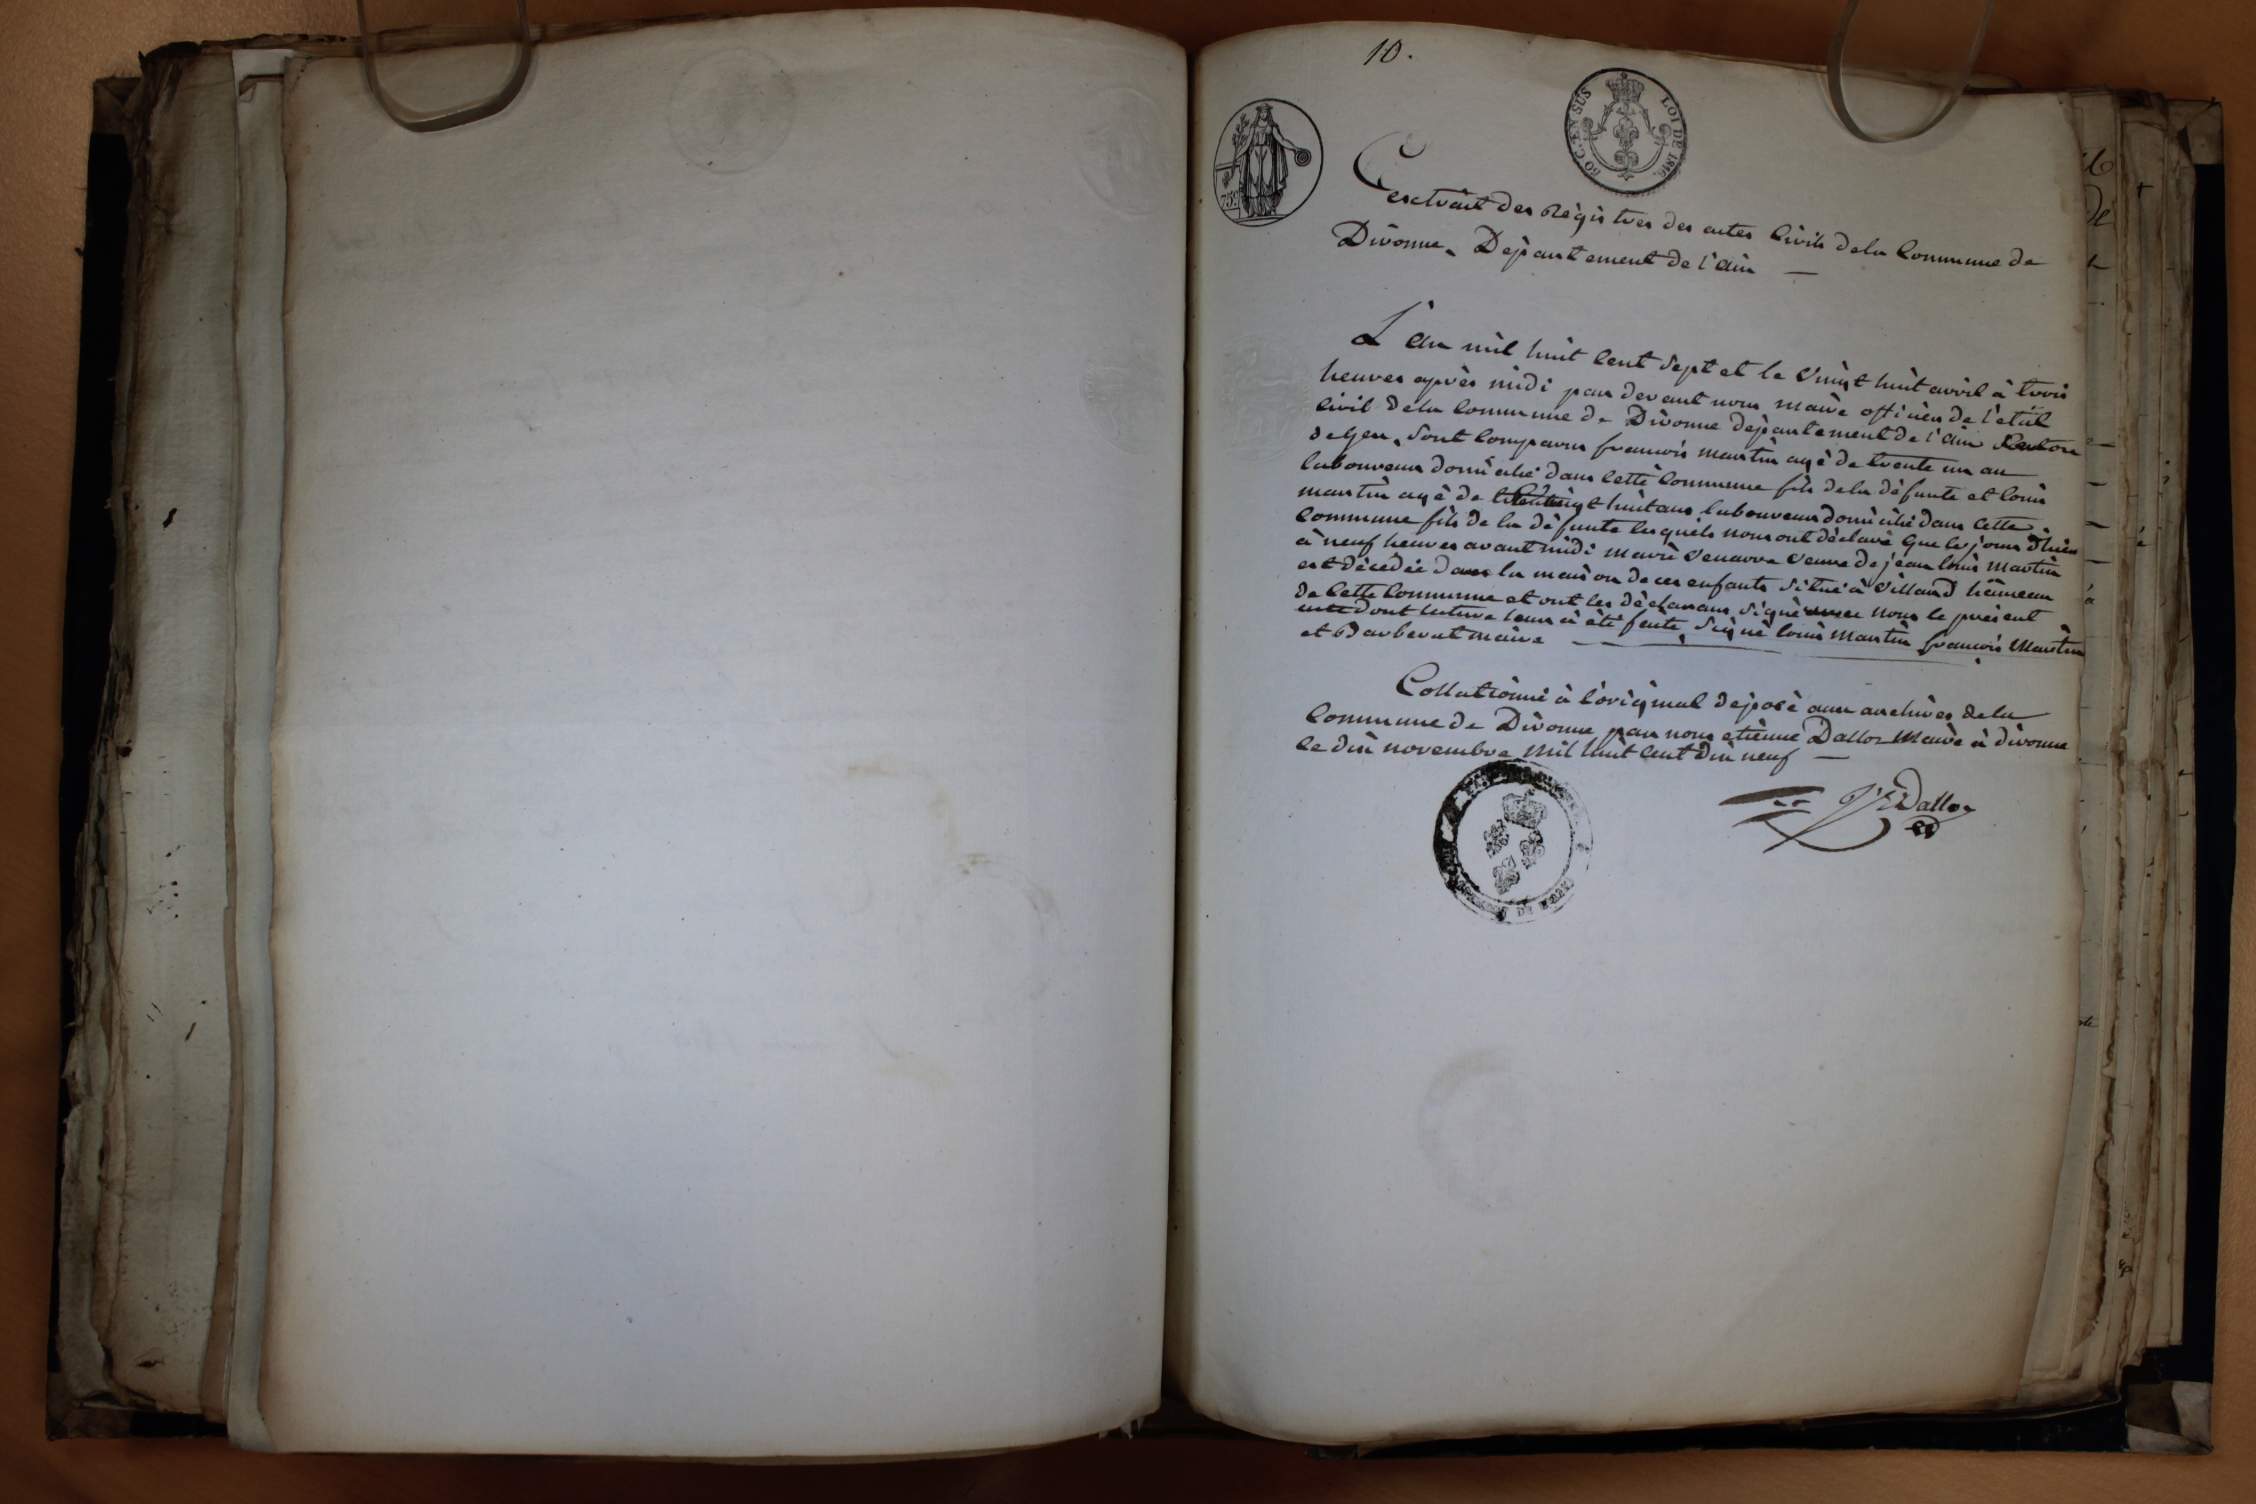 10.
50 C. EN SUS LOI DE 1816.
752
Eextrait des Régistres des actes Civils dela Commune de
Divonne. Département de l'ain —
L'an mil huit Cent Sept et le Vingt huit avril à trois
heures après midi par devant nous maire officier de l'état
Civil dela Commune de Divonne département de l'ain Canton
de Gex, Sont Comparus francois martin agé de trente un an
laboureur domicilié dans Cette Commune fils dela défunte et louis
martin agé de vingt huit ans laboureur domicilié dans Cette
Commune fils de la défunte lesquels nous ont déclaré que le jour d'hier
à neuf heures avant midi marie Venarre Veuve de jean louis martin
est décédée dans la maison de ces enfants Situé à Villard hameau
de Cette Commune et ont les déclarans Signé avec nous le présent
acte dont lecture leur à été faite, Signé louis martin francois Martin
et Barberat maire
Collationné à l'original déposé aux archives dela
Commune de Divonne par nous etienne Dalloz Maire à divonne
le dix novembre mil huit Cent dix neuf —
Dalloz